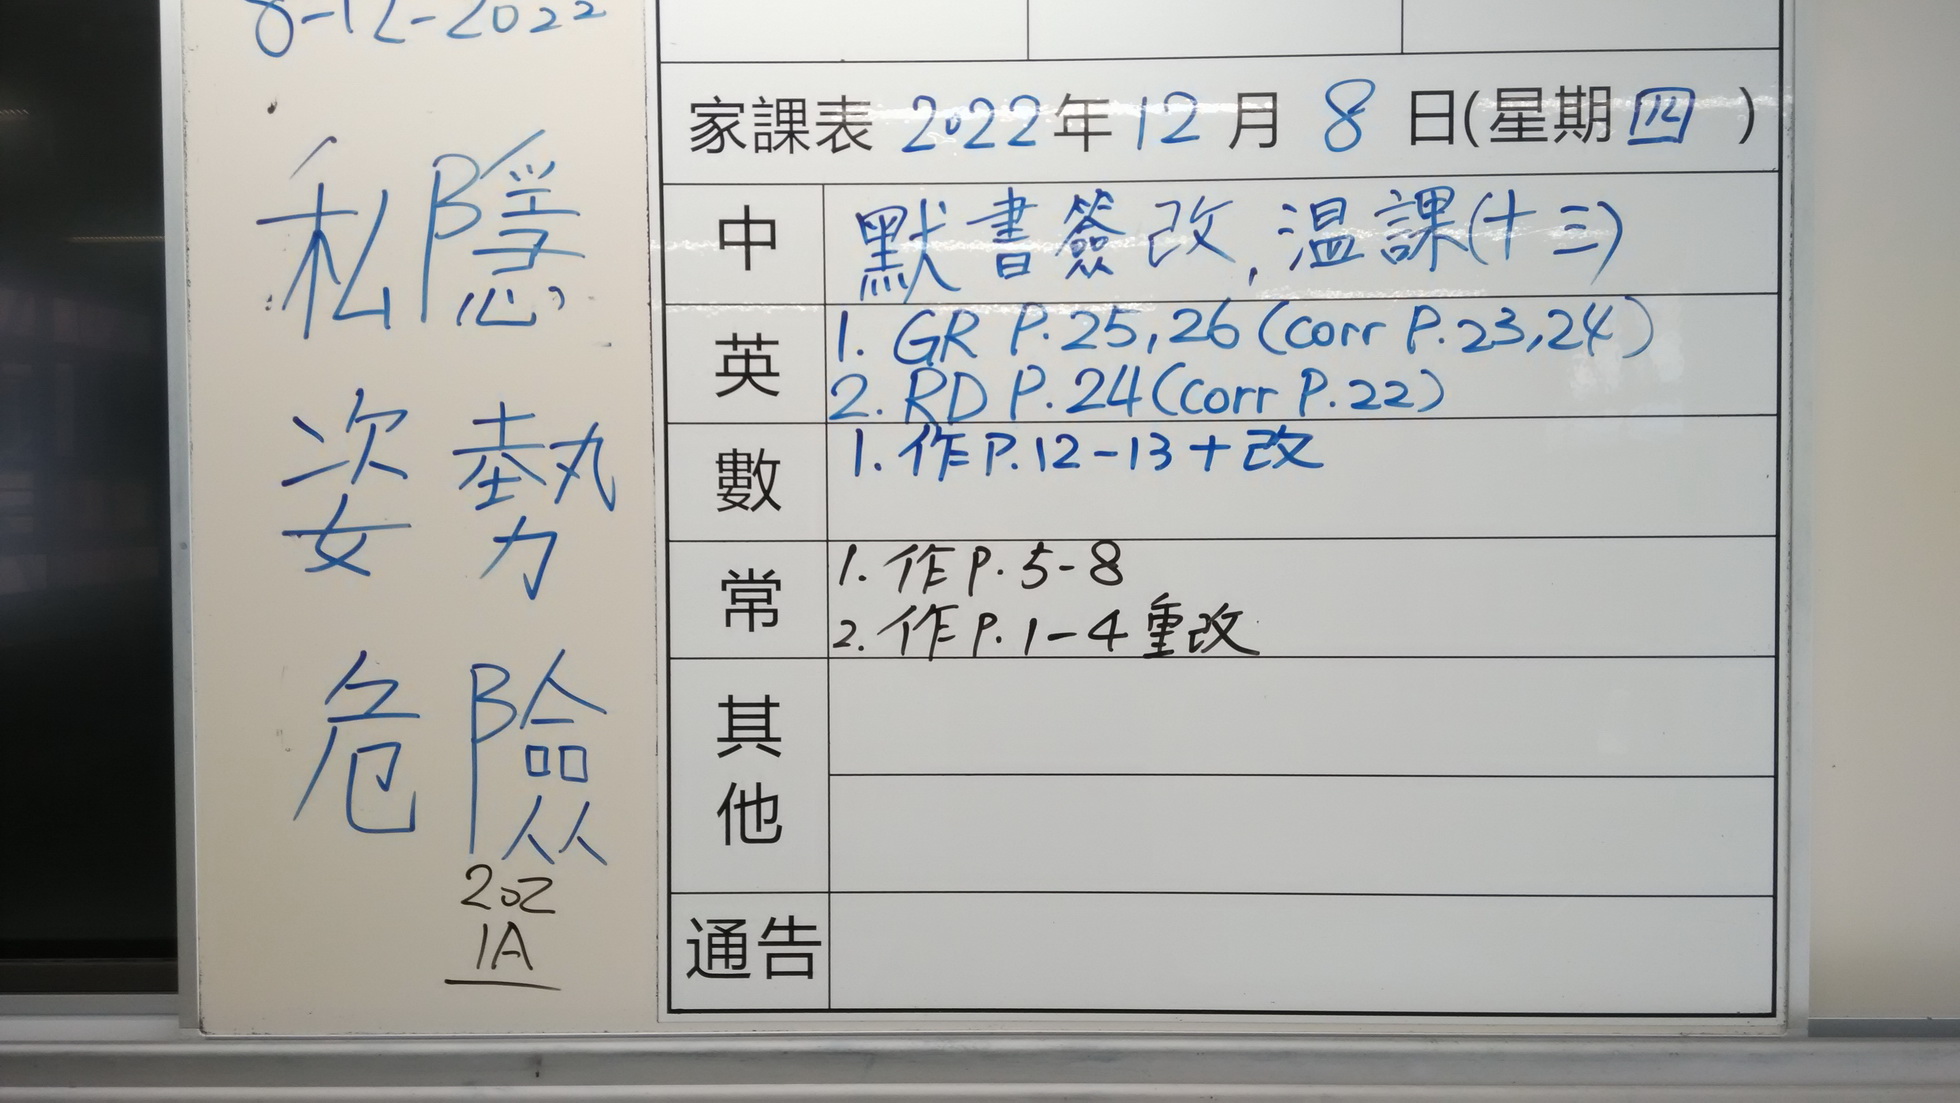 8-12-2022
私隱
姿勢
危險
202
1A
家課表 2022年12月8日(星期四)
中 默書簽改, 溫課(十三)
英 1. GR P.25,26 (corr P.23,24)
2. RD P.24 (corr P.22)
數 1. 作P.12-13+改
常 1. 作P.5-8
2. 作P.1-4重改
其他
通告